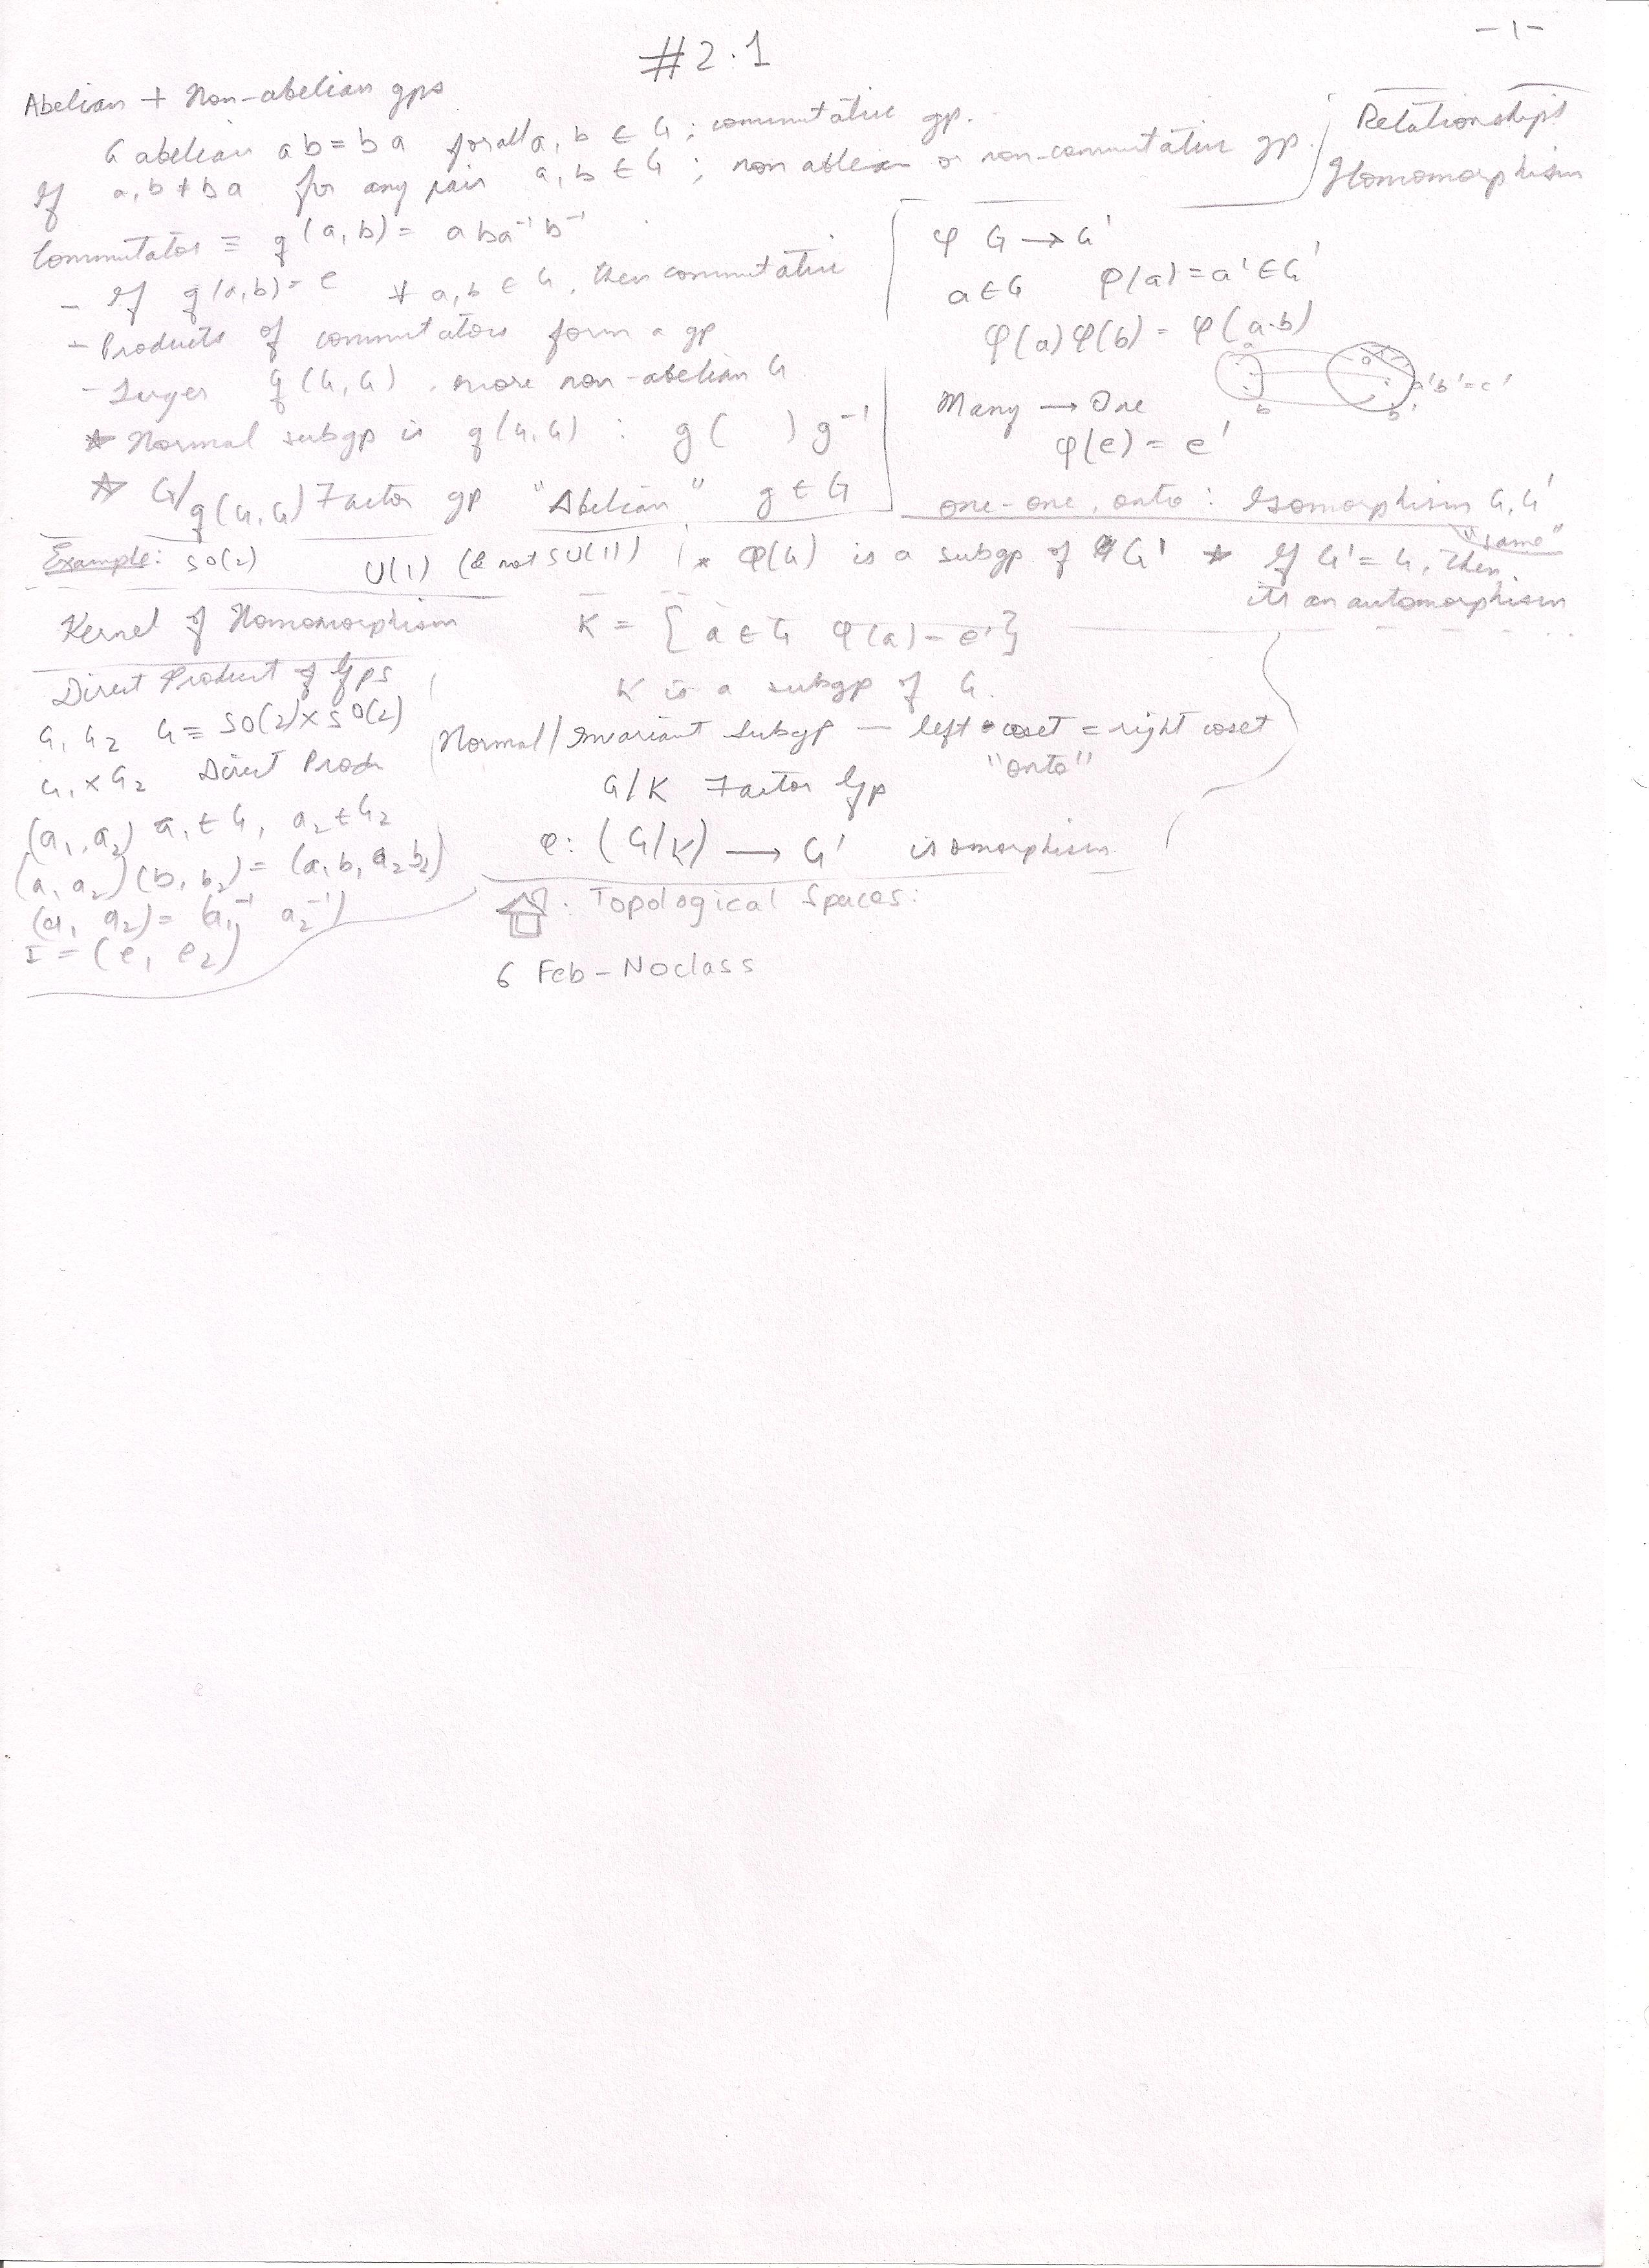 #2.1
-1-
Abelian + Non-abelian gps
G abelian ab = ba for all a, b ∈ G ; commutative gp.
If a,b ≠ ba for any pair a, b ∈ G ; non ablean or non-commutative gp.
Commutator ≡ q(a,b) = aba⁻¹b⁻¹
- If q(a,b) = e ∀ a,b ∈ G, then commutative
- Products of commutators form a gp
- Larger q(G,G), more non-abelian G
* Normal subgp is q(G,G) : g ( ) g⁻¹
* G/q(G,G) Factor gp "Abelian" g ∈ G
Relationships
Homomorphism
φ G → G'
a ∈ G φ(a) = a' ∈ G'
φ(a) φ(b) = φ(a·b)
a a'
b b' a'b' = c'
Many → One
φ(e) = e'
one-one, onto : Isomorphism G, G'
"same"
Example: SO(2) U(1) (& not SU(1))
* φ(G) is a subgp of G' * If G' = G, then
its an automorphism
Kernel of Homomorphism K = { a ∈ G φ(a) = e' }
K is a subgp of G.
Normal/Invariant Subgp — left coset = right coset
"onto"
G/K Factor Gp
φ: (G/K) → G' isomorphism
Direct Product of Gps
G₁ G₂ G ≡ SO(2) × SO(2)
G₁ × G₂ Direct Prod
(a₁, a₂) a₁ ∈ G₁ a₂ ∈ G₂
(a₁ a₂) (b₁ b₂) = (a₁b₁ a₂b₂)
(a₁ a₂) = (a₁⁻¹ a₂⁻¹)
I = (e₁ e₂)
: Topological Spaces:
6 Feb - No class